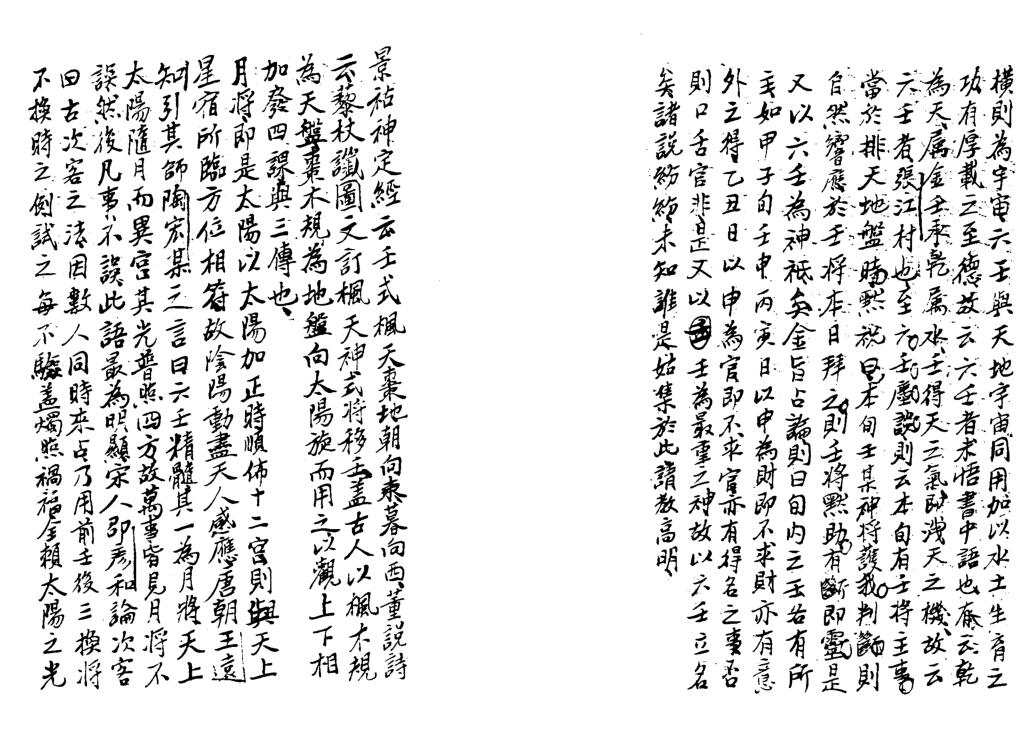 橫則為宇宙六壬與天地宇宙同用加以水土生育之
功有厚載之至德故云六壬者求悟書中語也有云乾
為天属金壬承乾属水壬得天之氣即洩天之機故云
六壬者張江村也至六壬劚談則云本旬有壬将主事
當於排天地盤時黙祝曰本旬壬某神将護我判斷則
自然響應於壬将本日拜之則壬将黙助有斷即靈是
又以六壬為神祇矣金㫖占論則曰旬内之壬若有所
主如甲子旬壬申丙寅日以申為財即不求財亦有意
外之得乙丑日以申為官即不求官亦有得名之事否
則口舌官非是又以壬為最重之神故以六壬立名
矣諸説紛紛未知誰是姑集於此請教高明
景祐神定經云壬式楓天棗地朝向東暮向西董説詩
云藜杖讖圖文訂楓天神式将移壬蓋古人以楓木規
為天盤棗木規為地盤向太陽旋而用之以觀上下相
加發四課與三傳也
月将即是太陽以太陽加正時順佈十二宮則與天上
星宿所臨方位相符故陰陽動盡天人感應唐朝王遠
知引其師陶宏某之言曰六壬精髓其一為月将天上
太陽隨月而異宮其光普照四方故萬事皆見月将不
誤然後凡事不誤此語最為明顯宋人邵彥和論次客
曰古次客之法因數人同時來占乃用前壬後三換将
不換時之例試之每不驗蓋燭照禍福全賴太陽之光